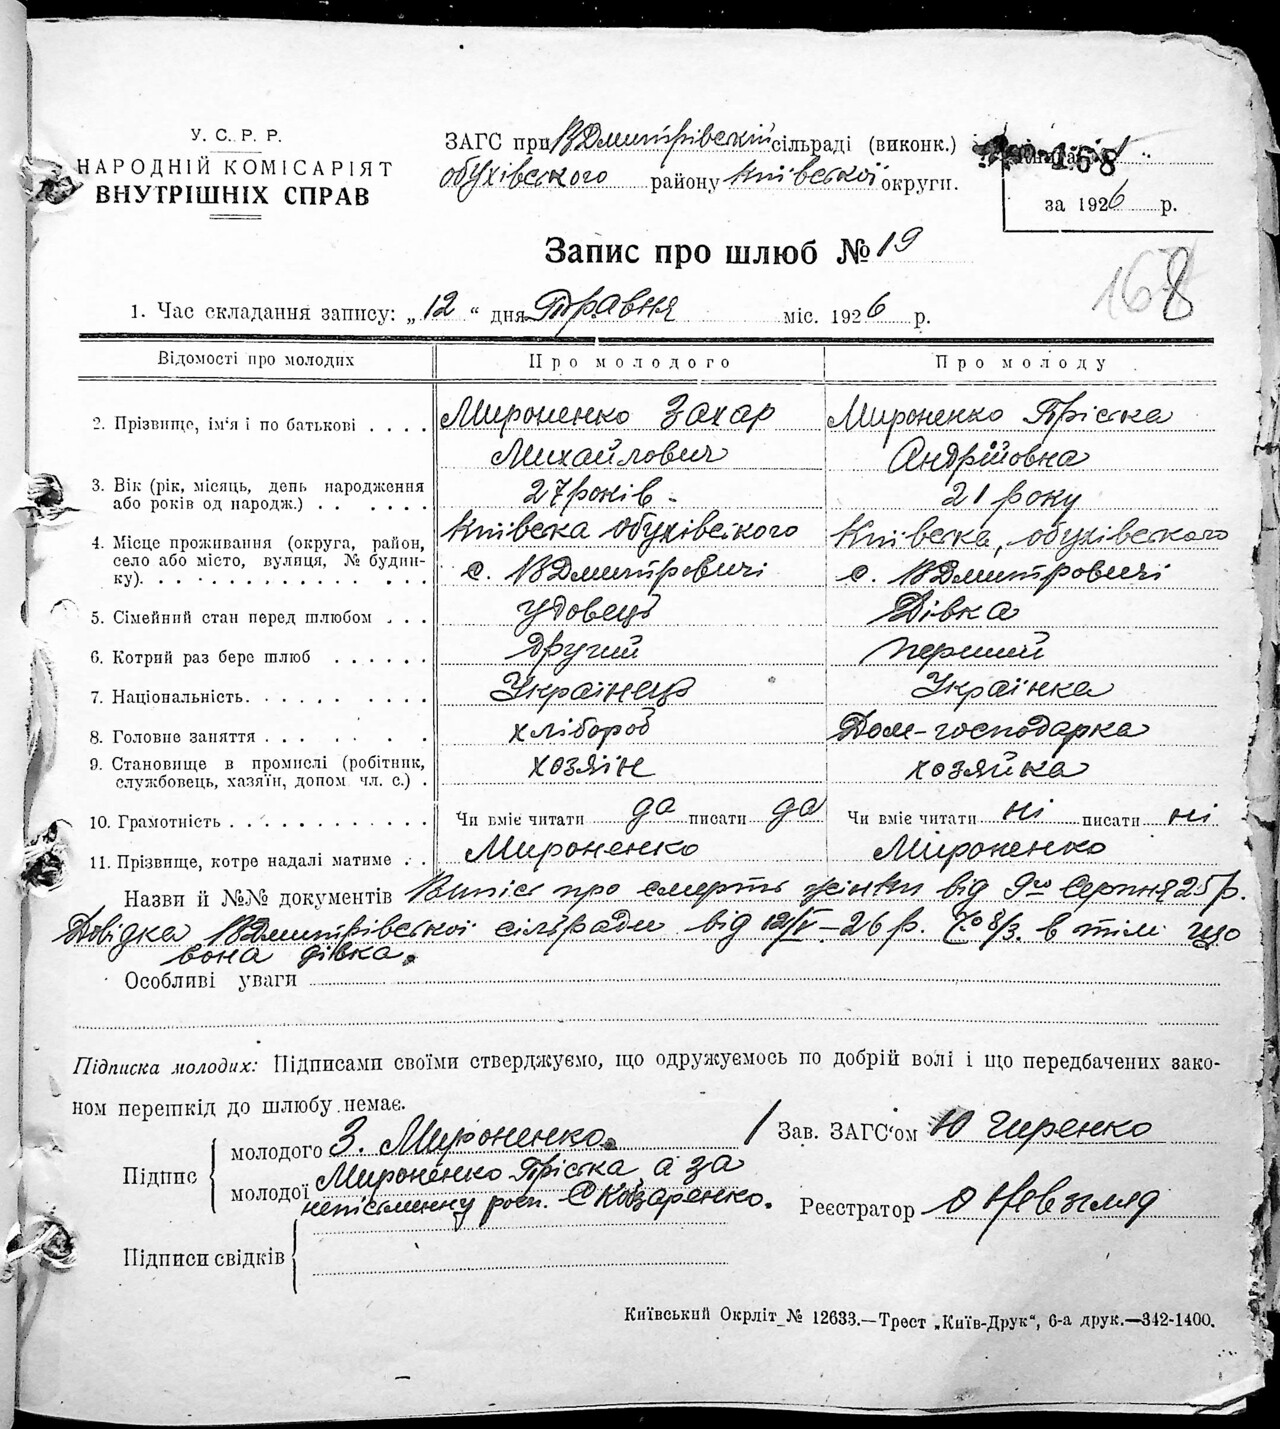 У. С. Р. Р.
НАРОДНІЙ КОМІСАРІЯТ
ВНУТРІШНІХ СПРАВ
ЗАГС при ВДмитрівській сільраді (виконк.)
обухівського району Київської округи.
168
за 1926 р.
Запис про шлюб № 19
168
1. Час складання запису: „12“ дня Травня міс. 1926 р.
Відомості про молодих Про молодого Про молоду
2. Прізвище, ім'я і по батькові . . . . Мироненко Захар Мироненко Пріська
Михайлович Андрійовна
3. Вік (рік, місяць, день народження 27 років 21 року
або років од народж.) . . . . . .
4. Місце проживання (округа, район, Київска обухівського Київска, обухівського
село або місто, вулиця, № будин- с. ВДмитровичі с. ВДмитровичі
ку). . . . . . . . . . . . . .
5. Сімейний стан перед шлюбом . . . удовець Дівка
6. Котрий раз бере шлюб . . . . . . Другий перший
7. Національність. . . . . . . . . . Українець Українка
8. Головне заняття . . . . . . . . хлібороб Дом-господарка
9. Становище в промислі (робітник, хозяін хозяйка
службовець, хазяїн, допом чл. с.) .
10. Грамотність . . . . . . . . . . . Чи вміє читати да писати да Чи вміє читати ні писати ні
11. Прізвище, котре надалі матиме . . Мироненко Мироненко
Назви й №№ документів Випіс про смерть жінки від 9го Серпня 25 р.
Довідка ВДмитрівської сільради від 12/V-26 р. в тім що
вона дівка.
Особливі уваги
Підписка молодих: Підписами своїми стверджуємо, що одружуємось по добрій волі і що передбачених зако-
ном перешкід до шлюбу немає.
Підпис
молодого З. Мироненко.
Зав. ЗАГС'ом Ю Гиренко
молодої Мироненко Пріська, а за
непісьменну росп. С Козаренко.
Реєстратор
Підписи свідків
Київський Окрліт № 12633.—Трест „Київ-Друк“, 6-а друк.—342-1400.